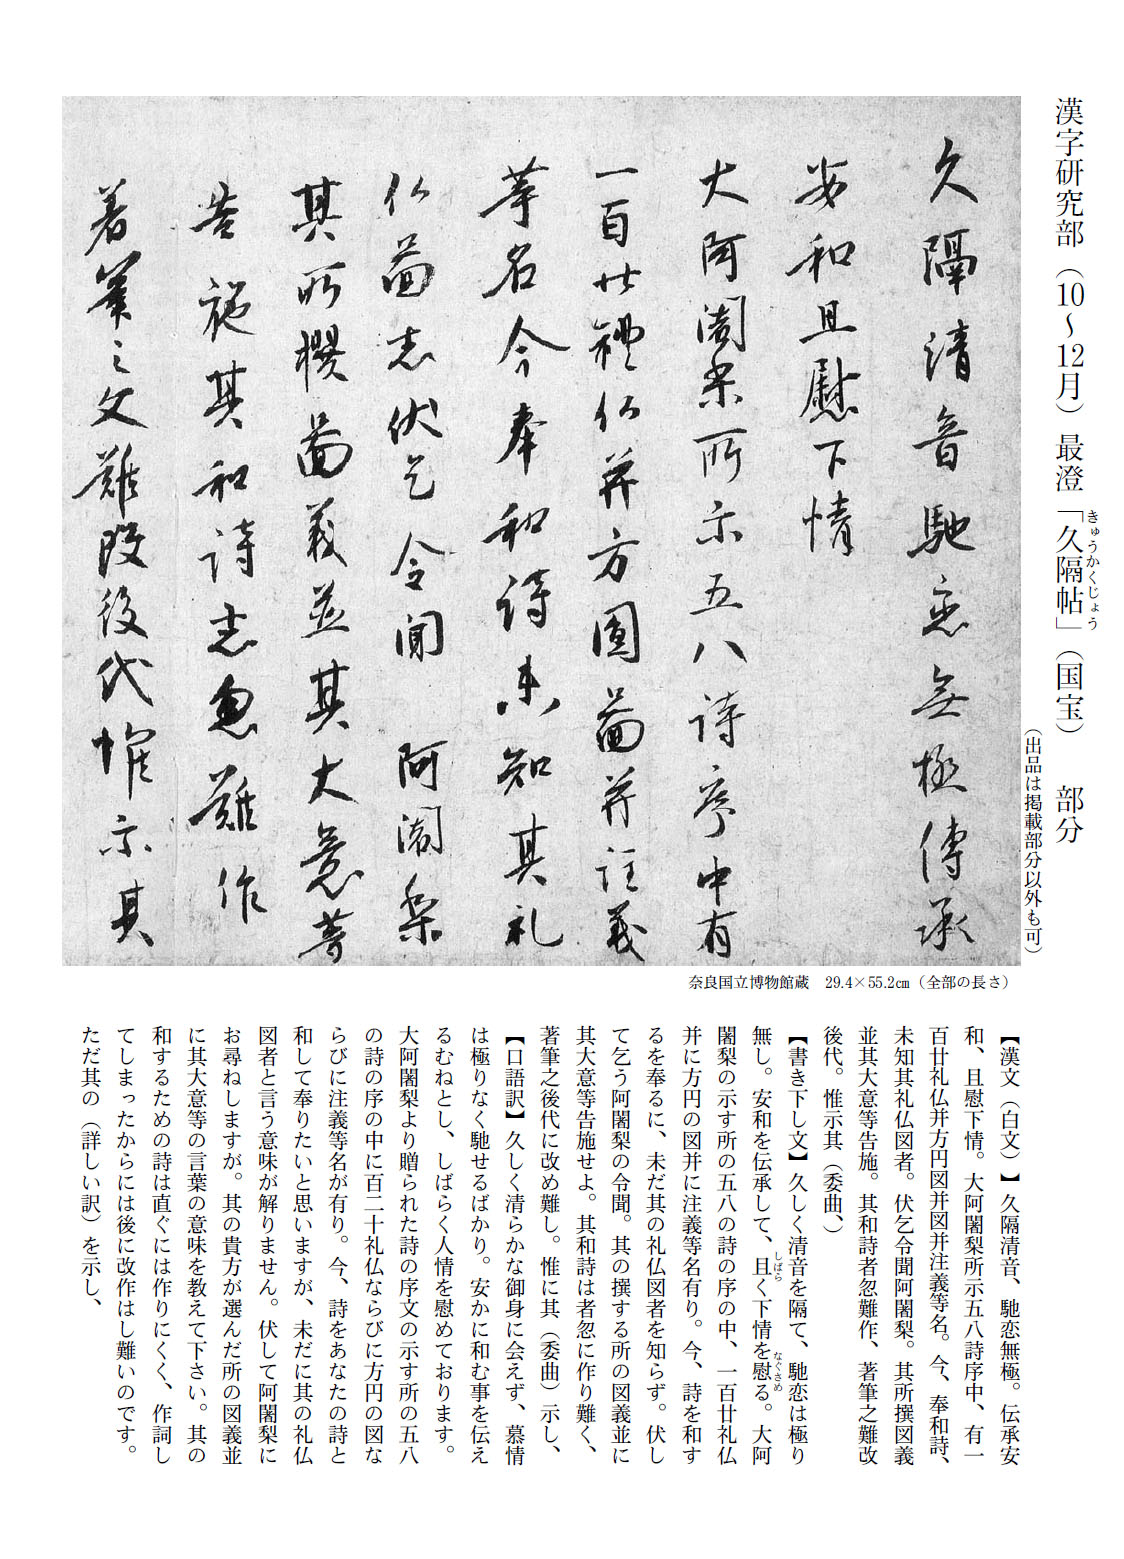 漢字研究部（10～12月）最澄「久隔帖」（国宝）　部分
きゅうかくじょう
（出品は掲載部分以外も可）
久隔清音馳恋無極傳承
安和且慰下情
大阿闍梨所示五八詩序中有
一百廿禮仏并方圓啚并註義
等名今奉和詩未知其礼
仏啚者伏乞令聞　阿闍梨
其所撰啚義並其大意等
告施其和詩者忽難作
著筆之文難改後代惟示其
奈良国立博物館蔵　29.4×55.2㎝（全部の長さ）
【漢文（白文）】久隔清音、馳恋無極。伝承安
和、且慰下情。大阿闍梨所示五八詩序中、有一
百廿礼仏并方円図并図并注義等名。今、奉和詩、
未知其礼仏図者。伏乞令聞阿闍梨。其所撰図義
並其大意等告施。其和詩者忽難作、著筆之難改
後代。惟示其（委曲、）
【書き下し文】久しく清音を隔て、馳恋は極り
無し。安和を伝承して、且く下情を慰る。大阿
しばら
なぐさめ
闍梨の示す所の五八の詩の序の中、一百廿礼仏
并に方円の図并に注義等名有り。今、詩を和す
るを奉るに、未だ其の礼仏図者を知らず。伏し
て乞う阿闍梨の令聞。其の撰する所の図義並に
其大意等告施せよ。其和詩は者忽に作り難く、
著筆之後代に改め難し。惟に其（委曲）示し、
【口語訳】久しく清らかな御身に会えず、慕情
は極りなく馳せるばかり。安かに和む事を伝え
るむねとし、しばらく人情を慰めております。
大阿闍梨より贈られた詩の序文の示す所の五八
の詩の序の中に百二十礼仏ならびに方円の図な
らびに注義等名が有り。今、詩をあなたの詩と
和して奉りたいと思いますが、未だに其の礼仏
図者と言う意味が解りません。伏して阿闍梨に
お尋ねしますが。其の貴方が選んだ所の図義並
に其大意等の言葉の意味を教えて下さい。其の
和するための詩は直ぐには作りにくく、作詞し
てしまったからには後に改作はし難いのです。
ただ其の（詳しい訳）を示し、